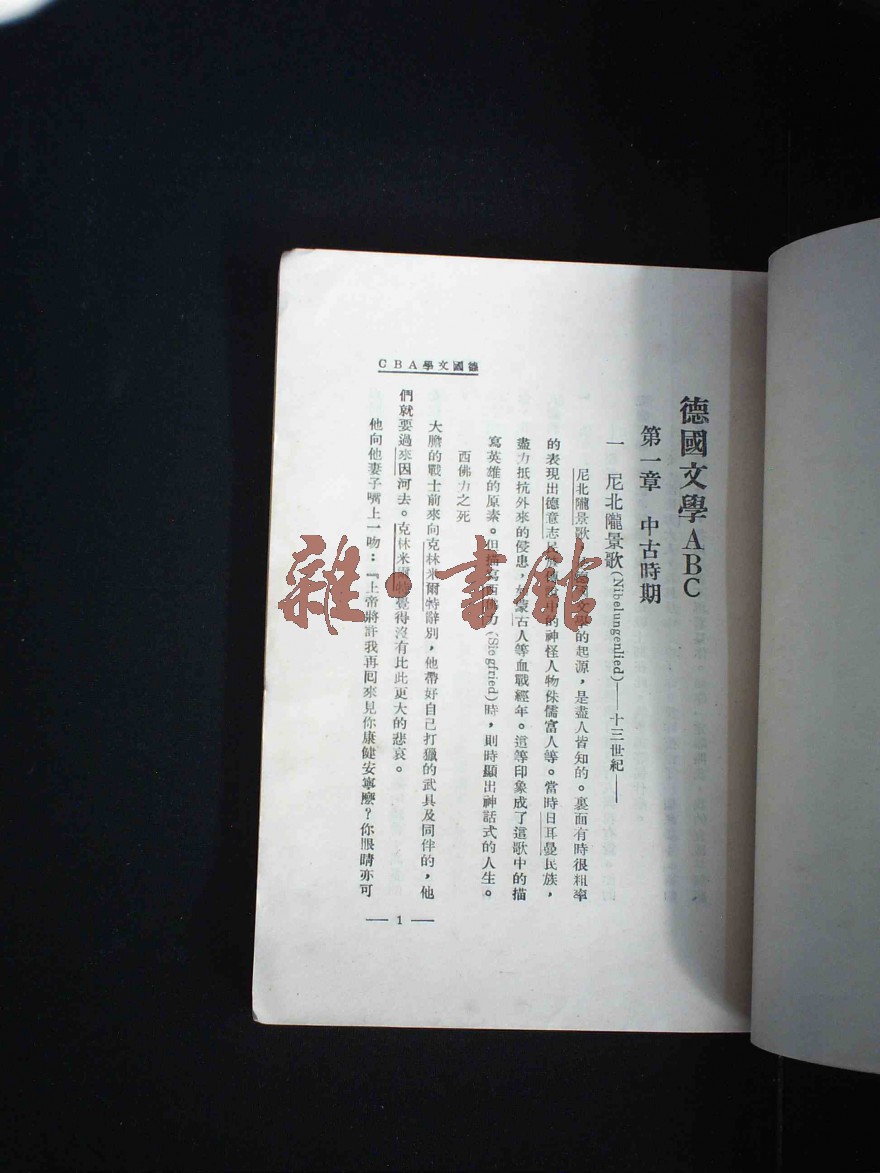 德國文學ABC
第一章 中古時期
一 尼北隴景歌(Nibelungenlied)——十三世紀——
尼北隴景歌 德國文學的起源，是盡人皆知的。裏面有時很粗率
的表現出德意志民族 中的神怪人物侏儒富人等。當時日耳曼民族，
盡力抵抗外來的侵患， 蒙古人等血戰經年。這等印象成了這歌中的描
寫英雄的原素。但描寫西佛力(Siegfried)時，則時顯出神話式的人生。
西佛力之死
大膽的戰士前來向克林米爾特辭別，他帶好自己打獵的武具及同伴的，他
們就要過來因河去。克林米爾特覺得沒有比此更大的悲哀。
他向他妻子嘴上一吻：『上帝將許我再囘來見你康健安寧麼？你眼睛亦可
CBA學文國德
— 1 —
雜·書館